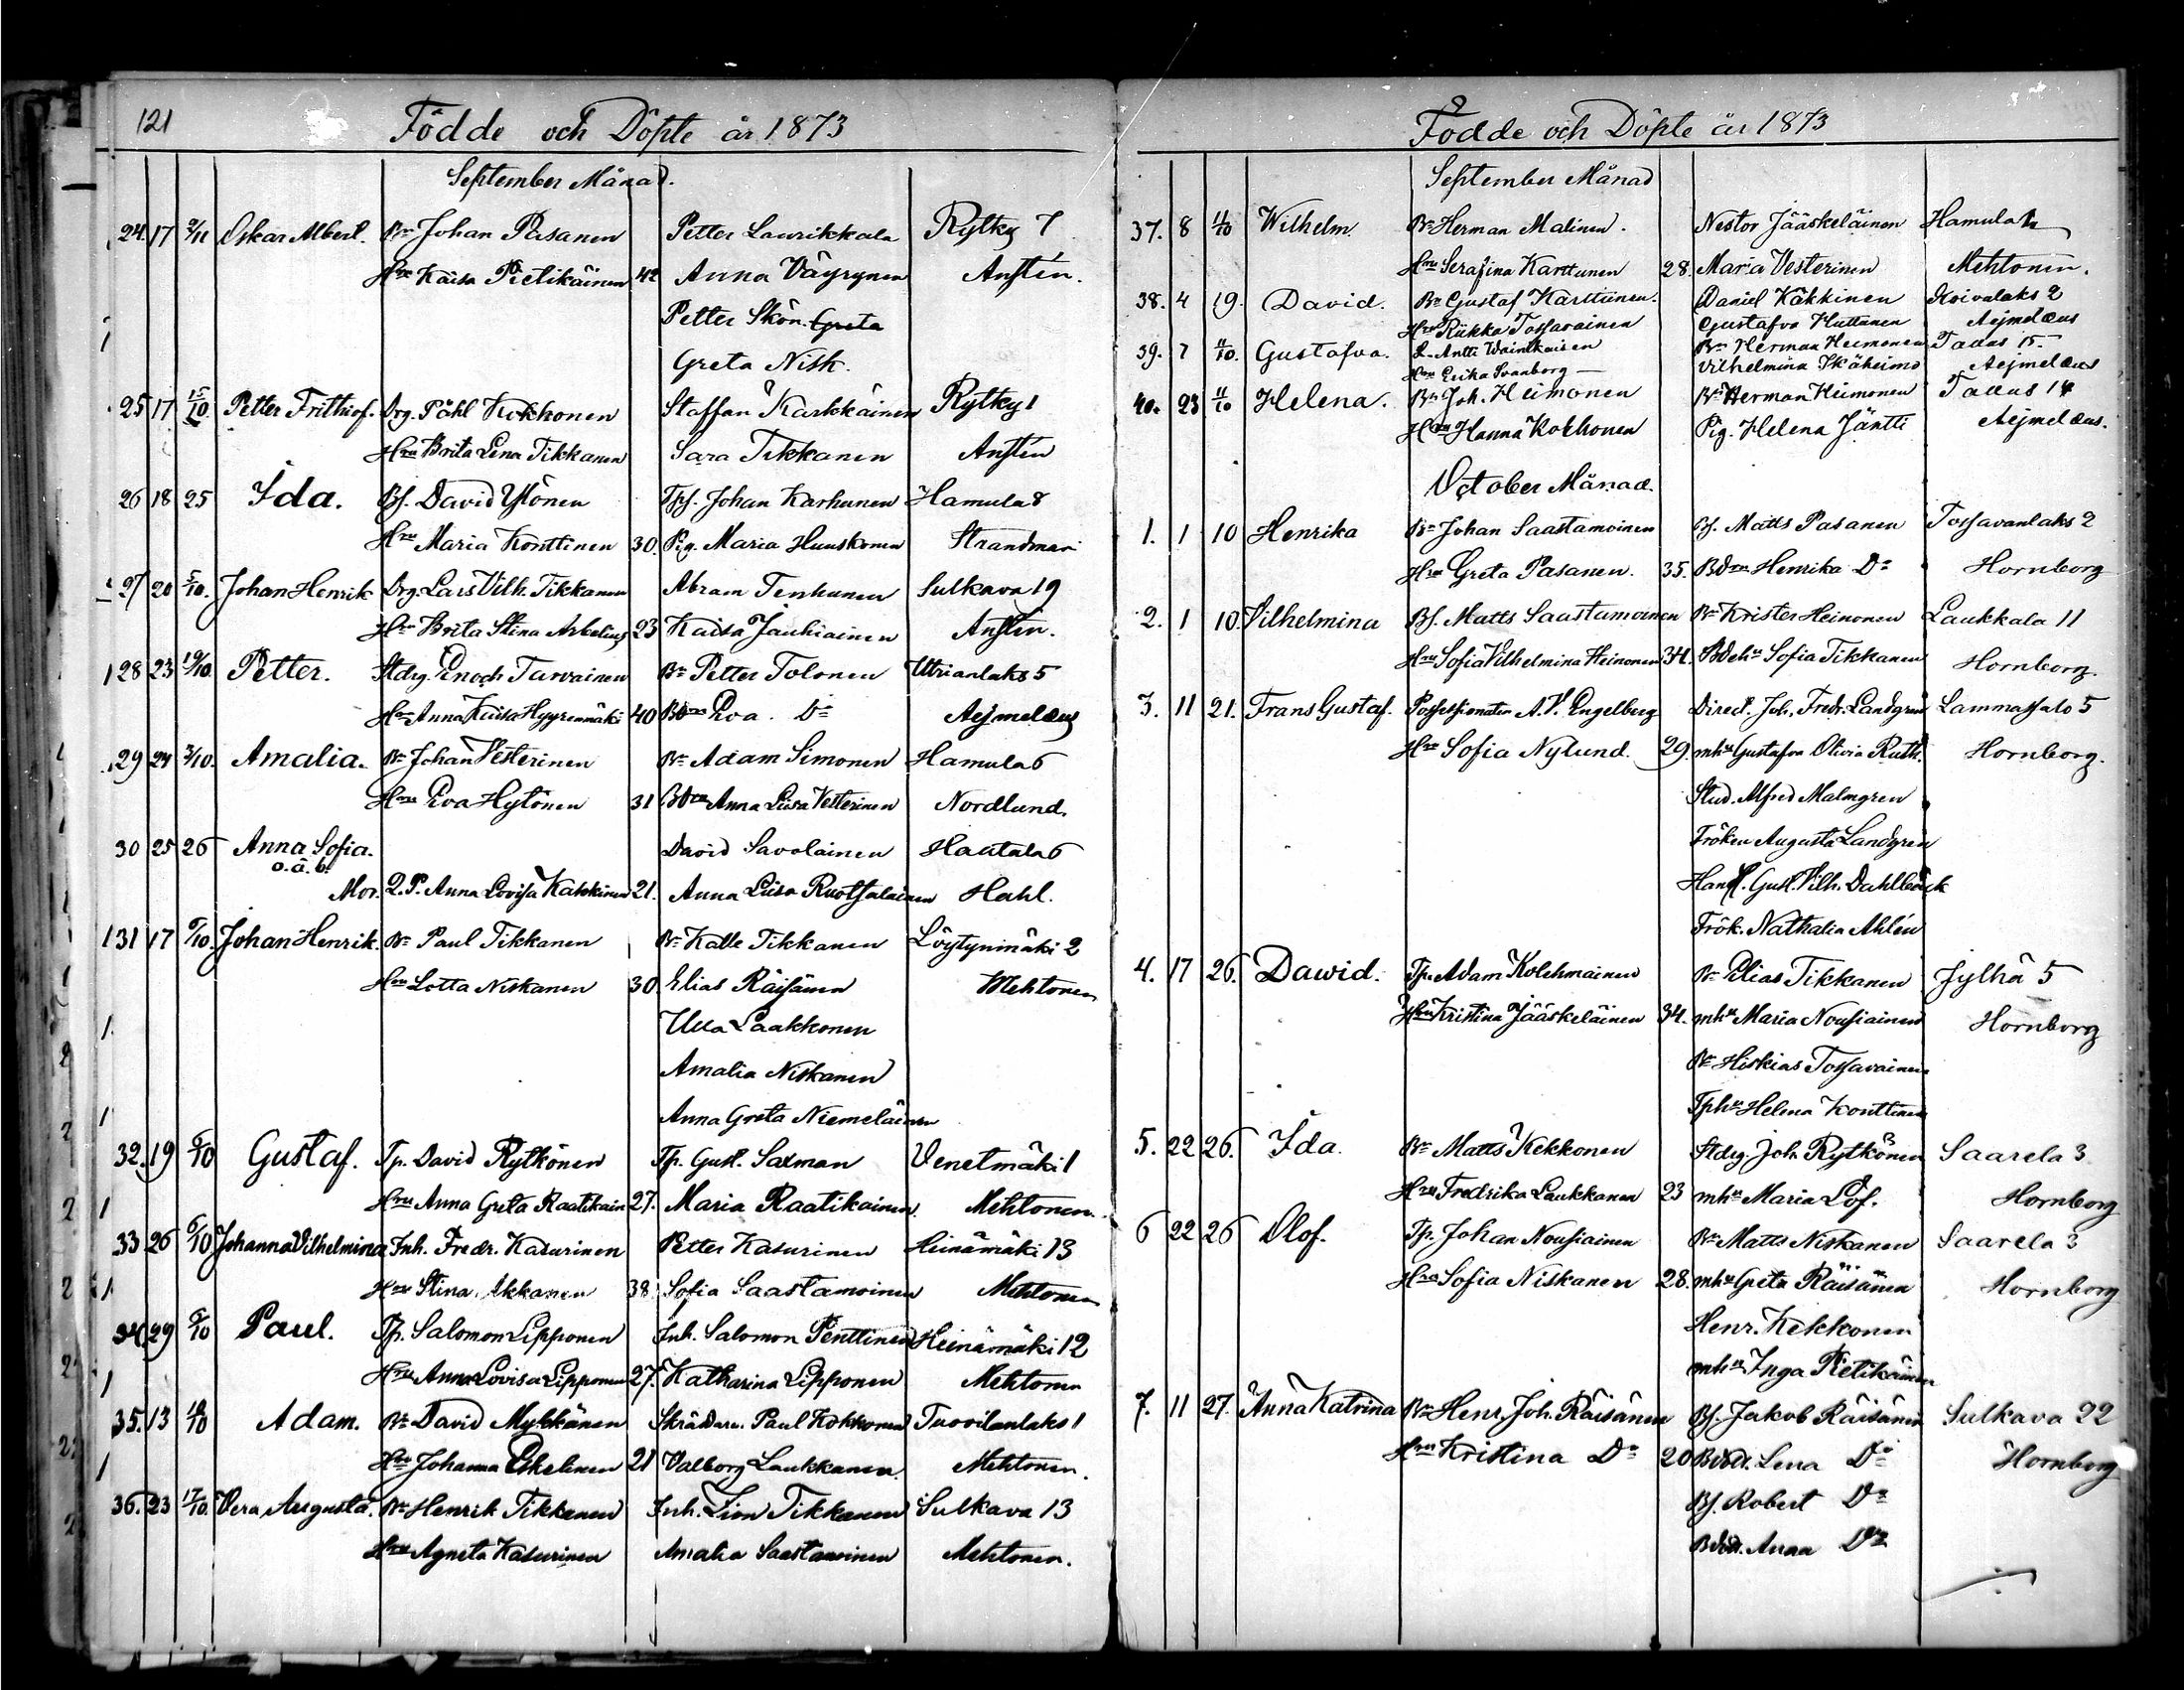 121
Födde och Döpte år 1873
September Månad.
24. 17 2/11 Oskar Albert. Bn Johan Pasanen Petter Laurikkala Rytky 7
Hru Kaisa Pietikäinen 42 Anna Väyrynen Anstén.
Petter Skön. Greta
Greta Nisk.
25 17 15/10 Petter Frithiof. Drg. Påhl Kokkonen Staffan Karkkäinen Rytky 1
Hru Brita Lena Tikkanen Sara Tikkanen Anstén
26 18 25 Ida. Bs. David Ylönen Tps. Johan Karhunen Hamula 8
Hru Maria Konttinen 30. Pig. Maria Huuskonen Strandman
27 20 5/10. Johan Henrik Drg. Lars Vilh. Tikkanen Abram Tenhunen Sulkava 19
Hru Brita Stina Arbelius 23 Kaisa Jauhiainen Anstén.
28 23 19/10. Petter. Stdrg. Enoch Tarvainen Bn Petter Tolonen Utrianlaks 5
Hru Anna Kaisa Hyyrenmäki 40 Bdru Eva Do Aejmelæus
29 24 3/10. Amalia. Bn Johan Vesterinen Bn Adam Simonen Hamula 6
Hru Eva Hytönen 31 Bdru Anna Liisa Vesterinen Nordlund.
30 25 26 Anna Sofia. David Savolainen Haatala 6
o.ä.b.
Mor. Q.P. Anna Lovisa Kakkinen 21. Anna Liisa Ruotsalainen Hahl.
31 17 6/10. Johan Henrik. Bn Paul Tikkanen Bn Kalle Tikkanen Löytynmäki 2
Hru Lotta Niskanen 30. Elias Räisänen Mehtonen
Ulla Laakkonen
Amalia Niskanen
Anna Greta Niemeläinen
32. 19 6/10 Gustaf. Tp. David Rytkönen Tp. Gust. Saxman Venetmäki 1
Hru Anna Greta Raatikain 27. Maria Raatikainen. Mehtonen.
33 26 6/10 Johanna Vilhelmina Inh. Fredr. Kasurinen Petter Kasurinen Heinämäki 13
Hru Stina Akkanen 38 Sofia Saastamoinen Mehtonen
34. 29 6/10 Paul. Tp. Salomon Lipponen Inh. Salomon Penttinen Heinämäki 12
Hru Anna Lovisa Lipponen 27. Katharina Lipponen Mehtonen
35. 13 18/10 Adam. Bn David Mykkänen Skräddaren Paul Kokkonen Tuovilanlaks 1
Hru Johanna Eskelinen 21 Valborg Laukkanen. Mehtonen.
36. 23 17/10. Vera Augusta. Bn Henrik Tikkanen Inh. Zion Tikkanen Sulkava 13
Hru Agneta Kasurinen Amalia Saastamoinen Mehtonen.
Födde och Döpte år 1873
September Månad
37. 8 11/10 Wilhelm. Bn Herman Malinen. Nestor Jääskeläinen Hamula
Hru Serafina Karttunen 28. Maria Vesterinen Mehtonen.
38. 4 19. David. Bn Gustaf Karttunen. Daniel Käkkinen Koivulaks 2
Hru Riikka Tossavainen Gustafva Huttunen Aejmelæus
39. 7 11/10. Gustafva. Antti Wainikainen Bn Herman Heimonen Tallus 15.
Hru Erika Svanborg Vilhelmina Aejmelæus
40. 23 11/10 Helena. Bn Joh. Heimonen Bn Herman Heimonen Tallus 14
Hru Hanna Kokkonen Pig. Helena Jäntti Aejmelæus.
October Månad.
1. 1 10 Henrika Bn Johan Saastamoinen Bs. Matts Pasanen Tossavanlaks 2
Hru Greta Pasanen. 35. Bdru Henrika Do Hornborg
2. 1 10. Vilhelmina Bs. Matts Saastamoinen Bn Krister Heinonen Laukkala 11
Hru Sofia Vilhelmina Heinonen 34. Sofia Tikkanen Hornborg.
3. 11 21. Frans Gustaf. Possessionaten A. V. Engelberg Direct. Joh. Fredr. Landgren Lammassalo 5
Hru Sofia Nylund. 29. mhu Gustafva Olivia Ruth. Hornborg.
Stud. Alfred Malmgren
Fröken Augusta Landgren
Handl. Gust. Vilh. Dahlbäck
Frök. Nathalia Ahlén
4. 17 26. Dawid. Tp. Adam Kolehmainen Bn Elias Tikkanen Jylhä 5
Hru Kristina Jääskeläinen 34. mhu Maria Nousiainen Hornborg
Bn Hiskias Tossavainen
Tphu Helena Konttinen
5. 22 26. Ida. Bn Matts Kekkonen Stdrg. Joh. Rytkönen Saarela 3
Hru Fredrika Laukkanen 23 mhu Maria Löf. Hornborg
6 22 26 Olof. Tp. Johan Nousiainen Bn Matts Niskanen Saarela 3
Hru Sofia Niskanen 28. mhu Greta Räisänen Hornborg
Henr. Kekkonen
mhu Inga Pietikäinen
7. 11 27. Anna Katrina Bn Henr. Joh. Räisänen Bs. Jakob Räisänen Sulkava 22
Hru Kristina Do 20 Bdotr. Lena Do Hornborg
Bs. Robert Do
Bdotr. Anna Do